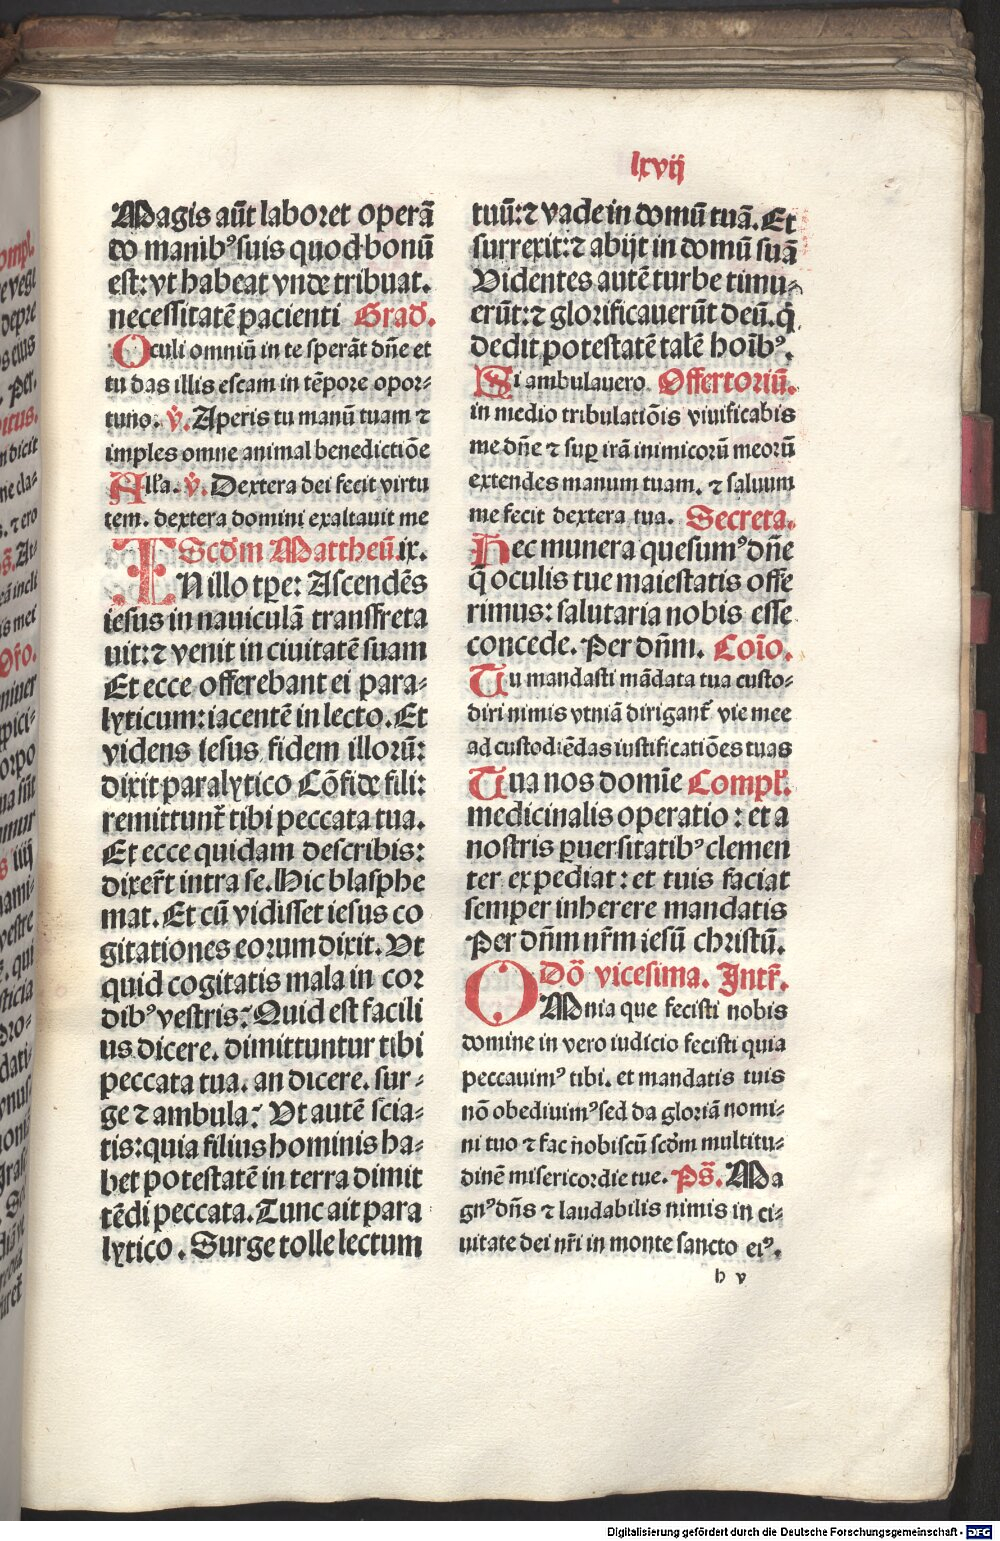 lxvij
Magis aūt laboret operā
do manibꝰ suis quod bonū
est: vt habeat vnde tribuat.
necessitatē pacienti Grad̄.
Oculi omniū in te sperāt dn̄e et
tu das illis escam in tēpore opor-
tuno. v̄. Aperis tu manū tuam ⁊
imples omne animal benedictiōe
All'a. v̄. Dextera dei fecit virtu
tem. dextera domini exaltauit me
Scdm Mattheū. ix.
IN illo tpe: Ascendēs
iesus in nauiculā transfreta
uit: ⁊ venit in ciuitatē suam
Et ecce offerebant ei para-
lyticum: iacentē in lecto. Et
videns iesus fidem illorū:
dixit paralytico Cōfide fili:
remittunt᷑ tibi peccata tua.
Et ecce quidam de scribis:
dixer̄t intra se. Hic blasphe
mat. Et cū vidisset iesus co
gitationes eorum dixit. Vt
quid cogitatis mala in cor
dibꝰ vestris: Quid est facili
us dicere. dimittuntur tibi
peccata tua. an dicere. sur-
ge ⁊ ambula: Vt autē scia-
tis: quia filius hominis ha-
bet potestatē in terra dimit
tēdi peccata. Tunc ait para
lytico. Surge tolle lectum
tuū: ⁊ vade in domū tuā. Et
surrexit: ⁊ abijt in domū suā
Videntes autē turbe timu-
erūt: ⁊ glorificauerūt deū. q̄
dedit potestatē talē hoībꝰ.
Si ambulauero Offertoriū.
in medio tribulatiōis viuificabis
me dn̄e ⁊ suꝑ irā inimicorū meorū
extendes manum tuam. ⁊ saluum
me fecit dextera tua. Secreta.
Hec munera quesumꝰ dn̄e
q̄ oculis tue maiestatis offe
rimus: salutaria nobis esse
concede. Per dn̄m. Coīo.
Tu mandasti mādata tua custo-
diri nimis vtniā dirigant᷑ vie mee
ad custodiēdas iustificatiōes tuas
Tua nos domīe Compl̄.
medicinalis operatio: et a
nostris ꝑuersitatibꝰ clemen
ter expediat: et tuis faciat
semper inherere mandatis
Per dn̄m nr̄m iesū christū.
Dō vicesima. Intr̄.
OMnia que fecisti nobis
domine in vero iudicio fecisti quia
peccauimꝰ tibi. et mandatis tuis
nō obediuimꝰ sed da gloriā nomi-
ni tuo ⁊ fac nobiscū scdm multitu-
dinē misericordie tue. Ps̄. Ma
gnꝰ dn̄s ⁊ laudabilis nimis in ci-
uitate dei nr̄i in monte sancto eiꝰ.
h v
Digitalisierung gefördert durch die Deutsche Forschungsgemeinschaft - DFG